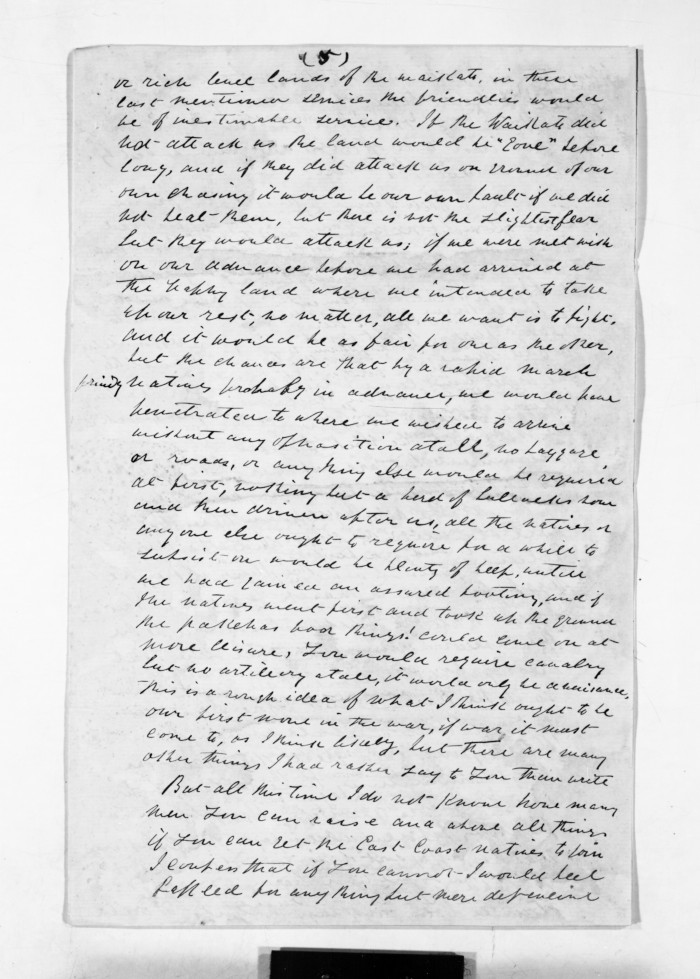 (5)
or rich level lands of the Waikato, in these
last mentioned services the friendlies would
be of inestimable service. If the Waikato did
not attack us the land would be "Gone" before
long, and if they did attack us on ground of our
own chosing it would be our own fault if we did
not beat them, but there is not the slightest fear
but they would attack us; if we were met with
on our advance before we had arrived at
the happy land where we intended to take
up our rest, no matter, all we want is to fight,
and it would be as fair for one as the other,
but the chances are that by a rapid march
friendly natives probably in advance, we would have
penetrated to where we wished to arrive
without any opposition atall, no baggage,
or roads, or any thing else would be required
at first, nothing but a herd of bullocks
and then driven after us, all the natives or
anyone else ought to require for a while to
subsist on would be plenty of beef, untill
we had gained an assured footing, and if
the natives went first and took up the ground
the pakehas poor things! could come on at
more leisure, You would require cavalry
but no artillery atall, it would only be a nuisance,
this is a rough idea of what I think ought to be
our first move in the war, if war it must
come to, as I think likely, but there are many
other things I had rather say to You than write
But all this time I do not know how many
men You can raise and above all things
if You can get the East Coast natives to join
I confess that if You cannot I would feel
for any thing but mere defensive